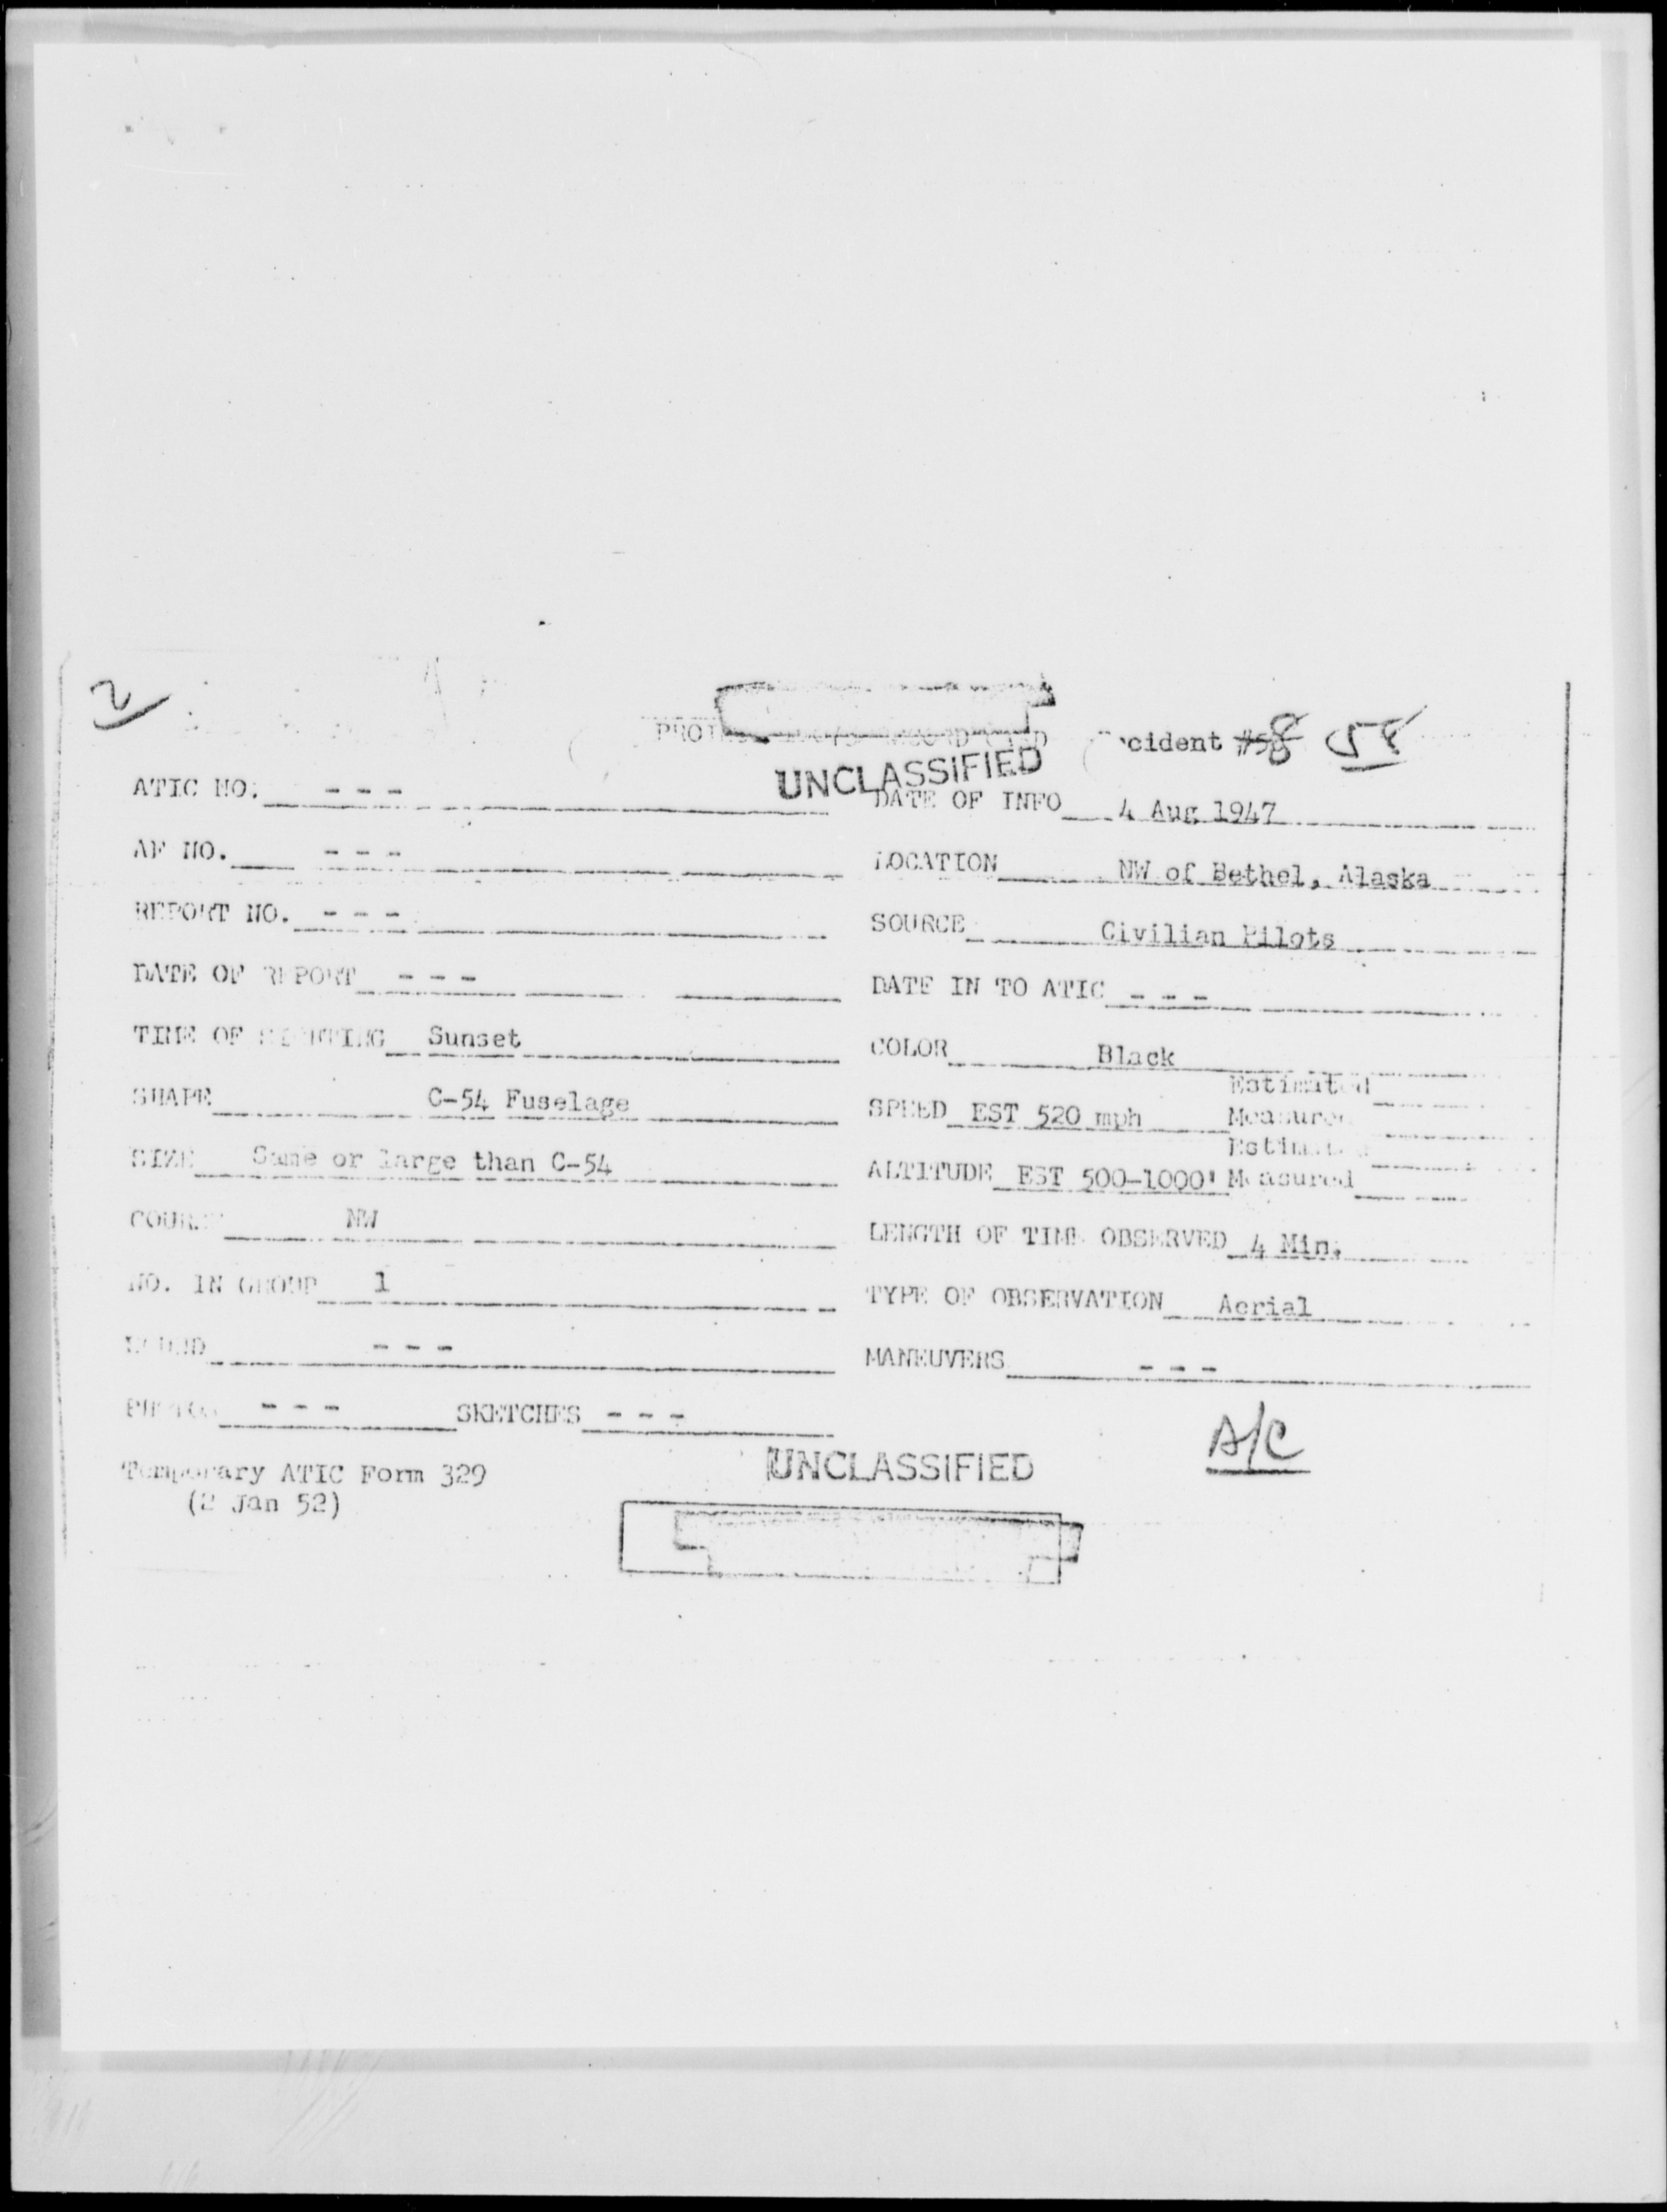 2
UNCLASSIFIED
ATIC NO. - - -
DATE OF INFO 4 Aug 1947
AF NO. - - -
LOCATION NW of Bethel, Alaska
REPORT NO. - - -
SOURCE Civilian Pilots
DATE OF REPORT - - -
DATE IN TO ATIC - - -
TIME OF SIGHTING Sunset
COLOR Black
SHAPE C-54 Fuselage
Estimated
SPEED EST 520 mph Measured
SIZE Same or large than C-54
Estimated
ALTITUDE EST 500-1000' Measured
COURSE NW
LENGTH OF TIME OBSERVED 4 Min.
NO. IN GROUP 1
TYPE OF OBSERVATION Aerial
SOUND - - -
MANEUVERS - - -
PHOTOS - - - SKETCHES - - -
A/C
Temporary ATIC Form 329
(2 Jan 52)
UNCLASSIFIED